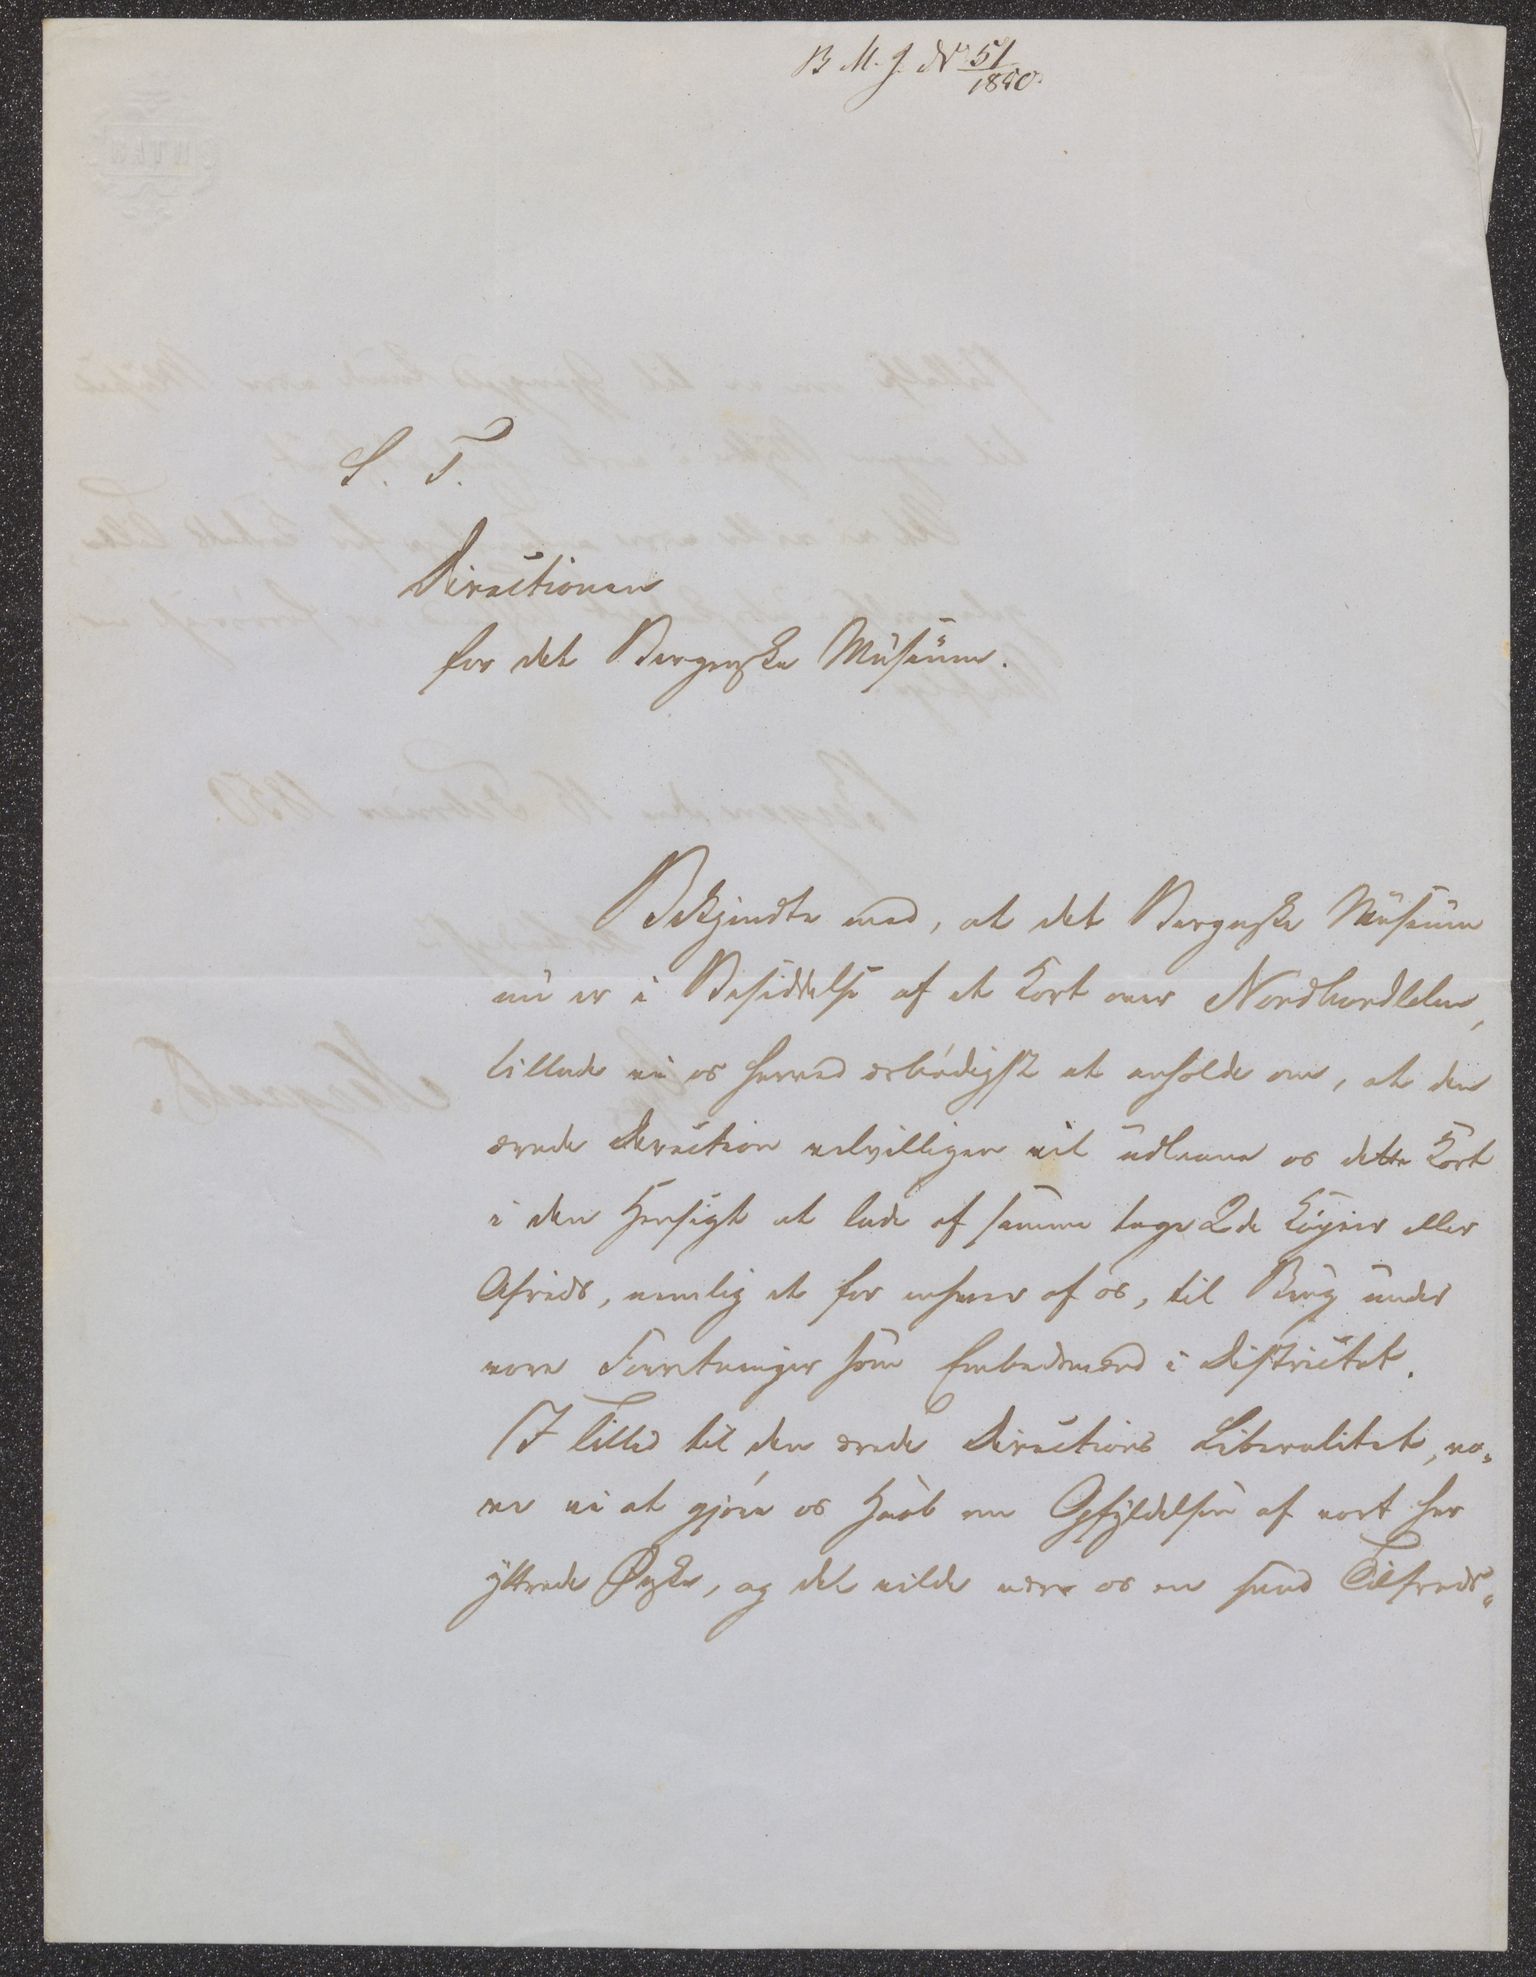 B. M. J. No 51/1850.
S. T.
Directionen
for det Bergenske Museum.
Bekjendte med, at det Bergenske Museum
nu er i Besiddelse af et Kort over Nordhordlehn,
tillade vi os herved ærbødigst at anholde om, at den
ærede Direction velvilligen vil udlaane os dette Kort
i den Hensigt at lade af samme tage 2de Copier eller
Afrids, nemlig et for enhver af os, til Brug under
vore Forretninger som Embedsmænd i Districtet.
I Tillid til den ærede Directions Liberalitet, vo-
ve vi at gjøre os Haab om Opfyldelsen af vort her
yttrede Ønske, og det vilde være os en sand Tilfreds-